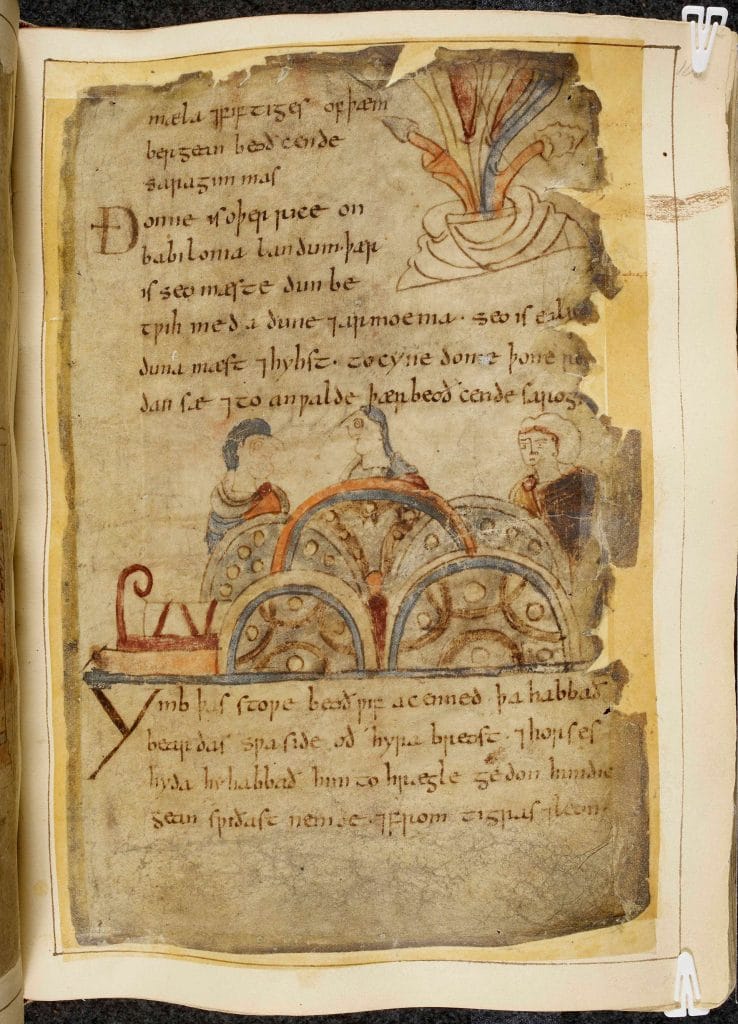 mæla ⁊ fiftiges of þæm
bergean beoð cende
saragimmas
Ðonne is oþer rice on
babilonia landum · þær
is seo mæste dun be
tƿih meda dune ⁊ armoenia · seo is eal
duna mæst ⁊ hyhst · to cyne dome þone re
dan sæ ⁊ to anƿalde þær beoð cende sarog
Ymb þas stoƿe beoð ƿif acenned þa habbað
beardas sƿa side oð hyra breost · ⁊ horses
hyda hy habbað him to hrægle gedon
sƿiðast nemde · tigras ⁊ leon